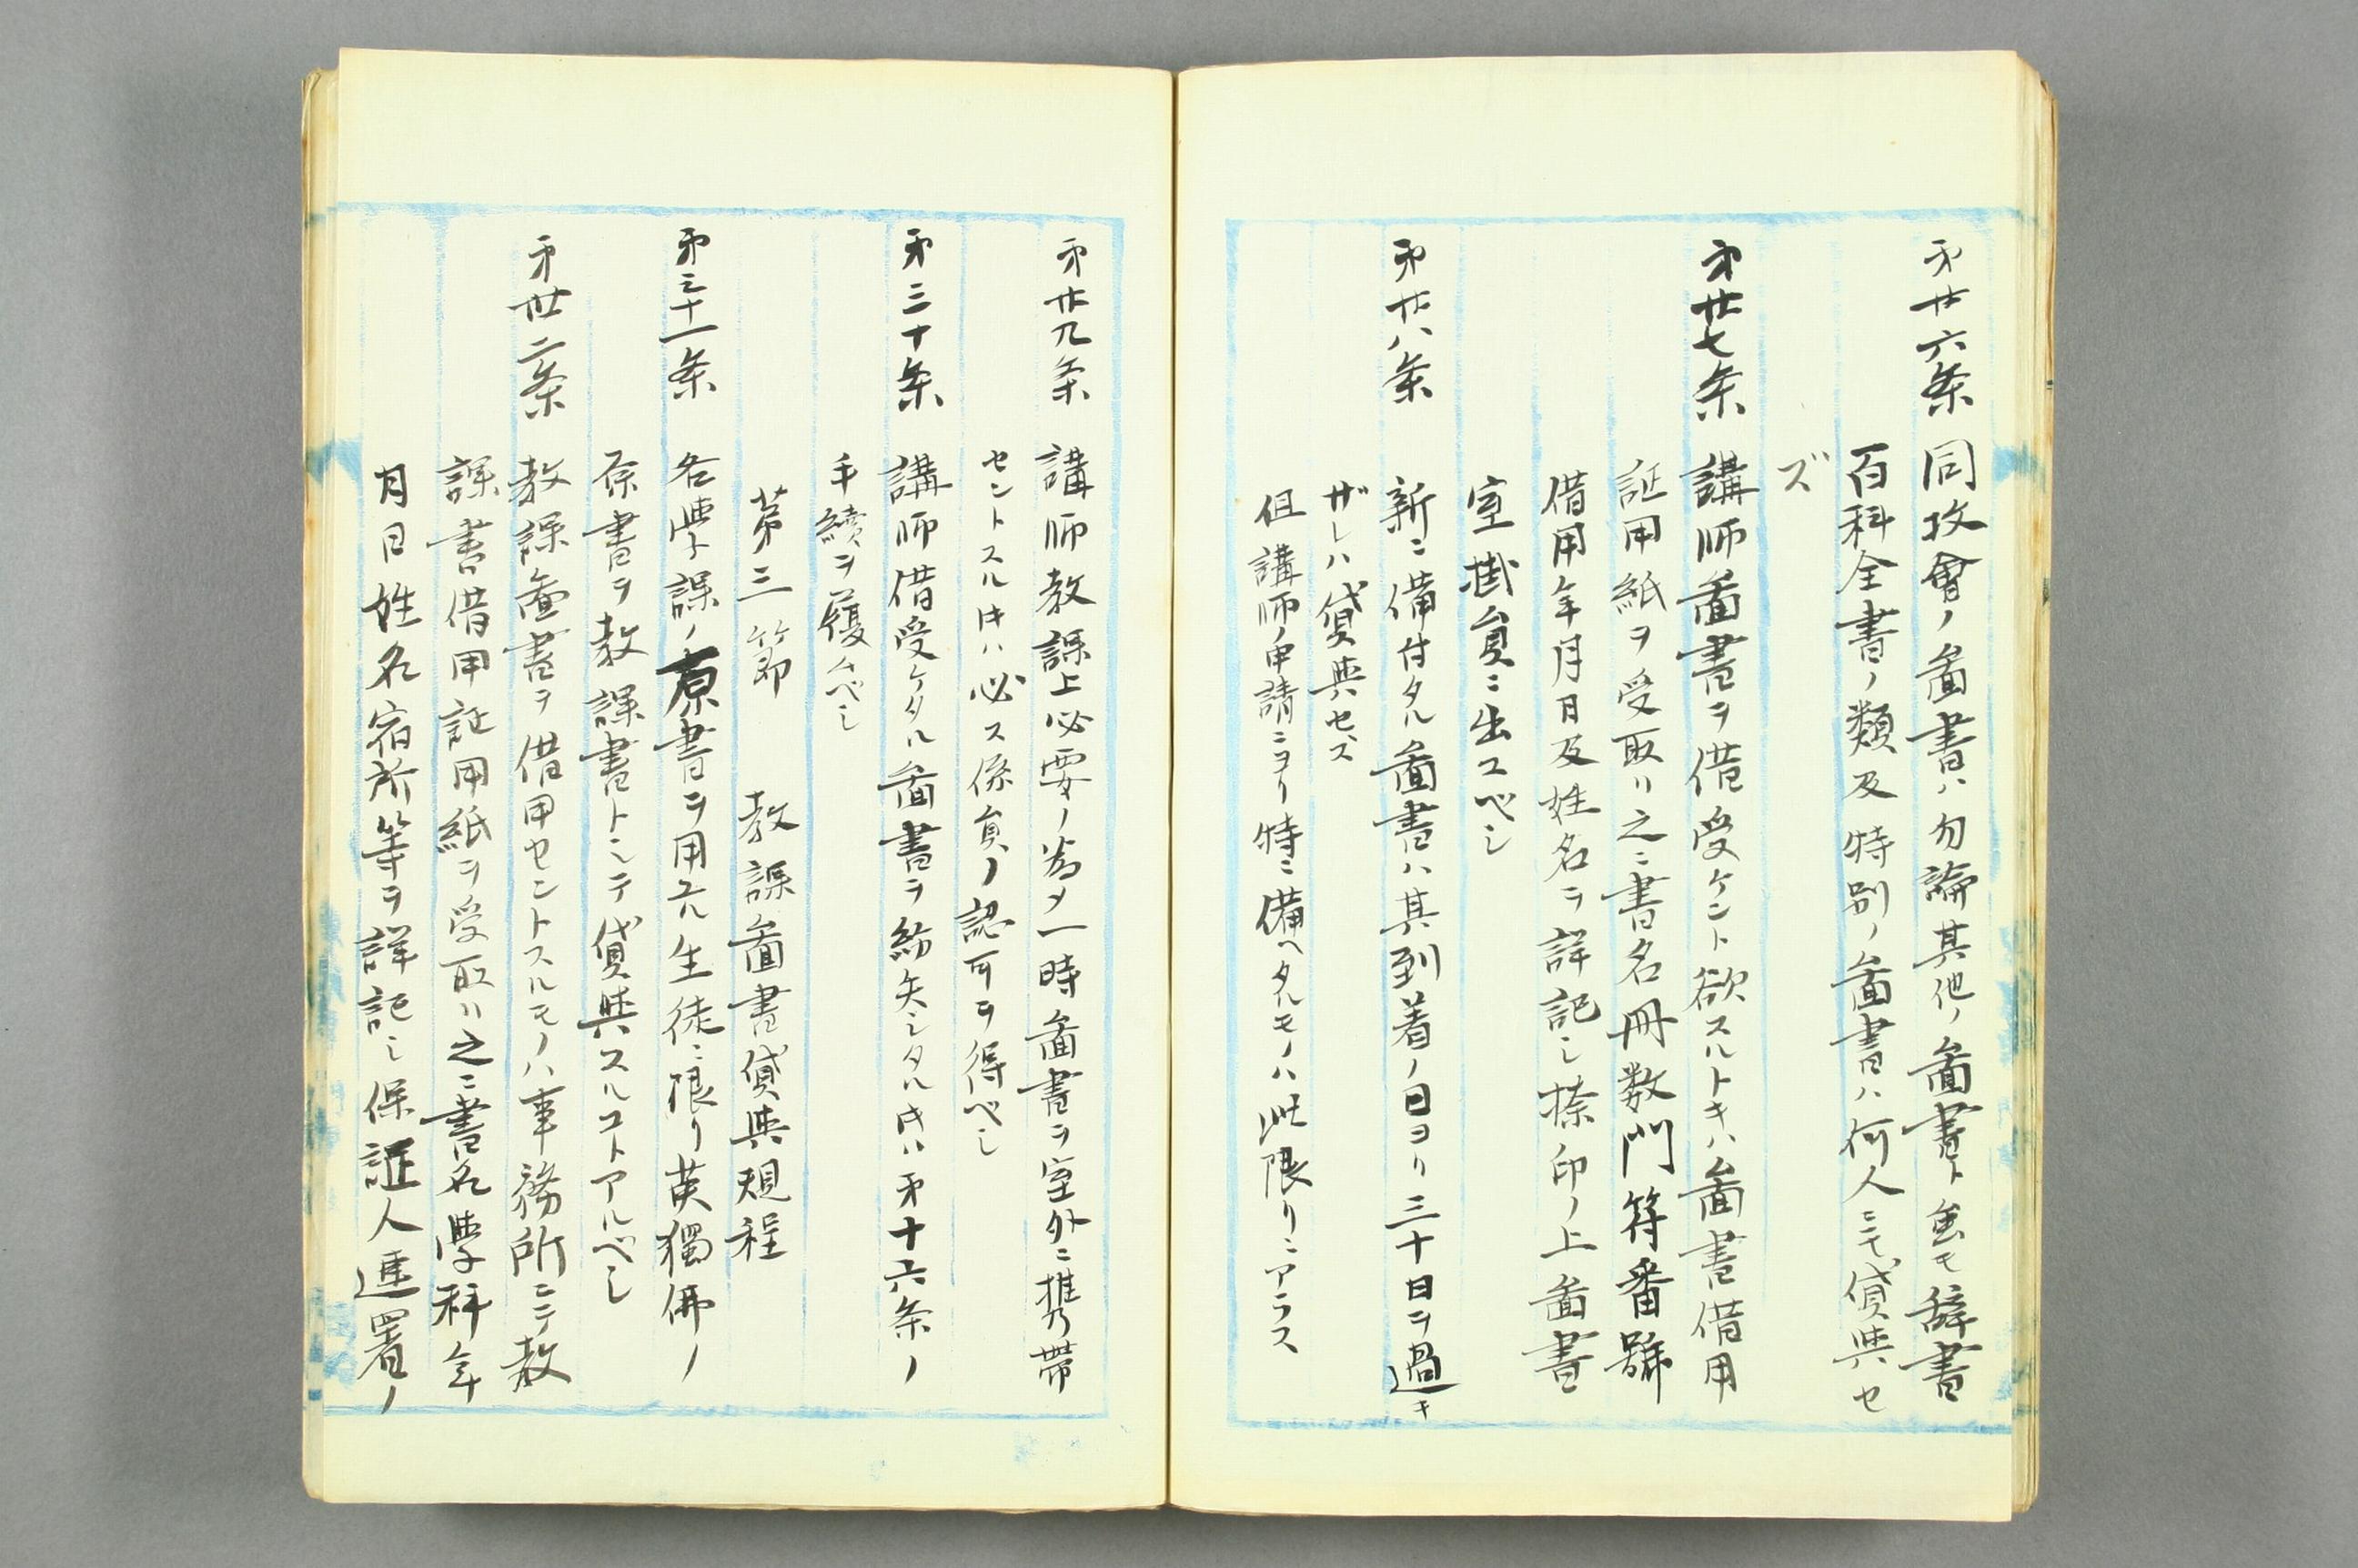 第廿六条 同攻會ノ啚書ハ勿論其他ノ啚書ト雖モ辞書
百科全書ノ類及特別ノ啚書ハ何人ニモ貸與セ
ズ
第廿七条 講師啚書ヲ借受ケント欲スルトキハ啚書借用
証用紙ヲ受取リ之ニ書名冊数門符番號
借用年月日及姓名ヲ詳記シ捺印ノ上啚書
室掛員ニ出スベシ
第廿八条 新ニ備付タル啚書ハ其到着ノ日ヨリ三十日ヲ過キ
ザレハ貸與セズ
但講師ノ申請ニヨリ特ニ備ヘタルモノハ此限リニアラス
第廿九条 講師教課上必要ノ為メ一時啚書ヲ室外ニ携帯
セントスルトキハ必ス係員ノ認可ヲ得ベシ
第三十条 講師借受ケタル啚書ヲ紛失シタルトキハ第十六条ノ
手續ヲ履ムベシ
第三節 教課啚書貸與規程
第三十一条 各學課ノ原書ヲ用ユル生徒ニ限リ英獨佛ノ
原書ヲ教課書トシテ貸與スルコトアルベシ
第丗二条 教課啚書ヲ借用セントスルモノハ事務所ニテ教
課書借用証用紙ヲ受取リ之ニ書名學科年
月日姓名宿所等ヲ詳記シ保証人連署ノ